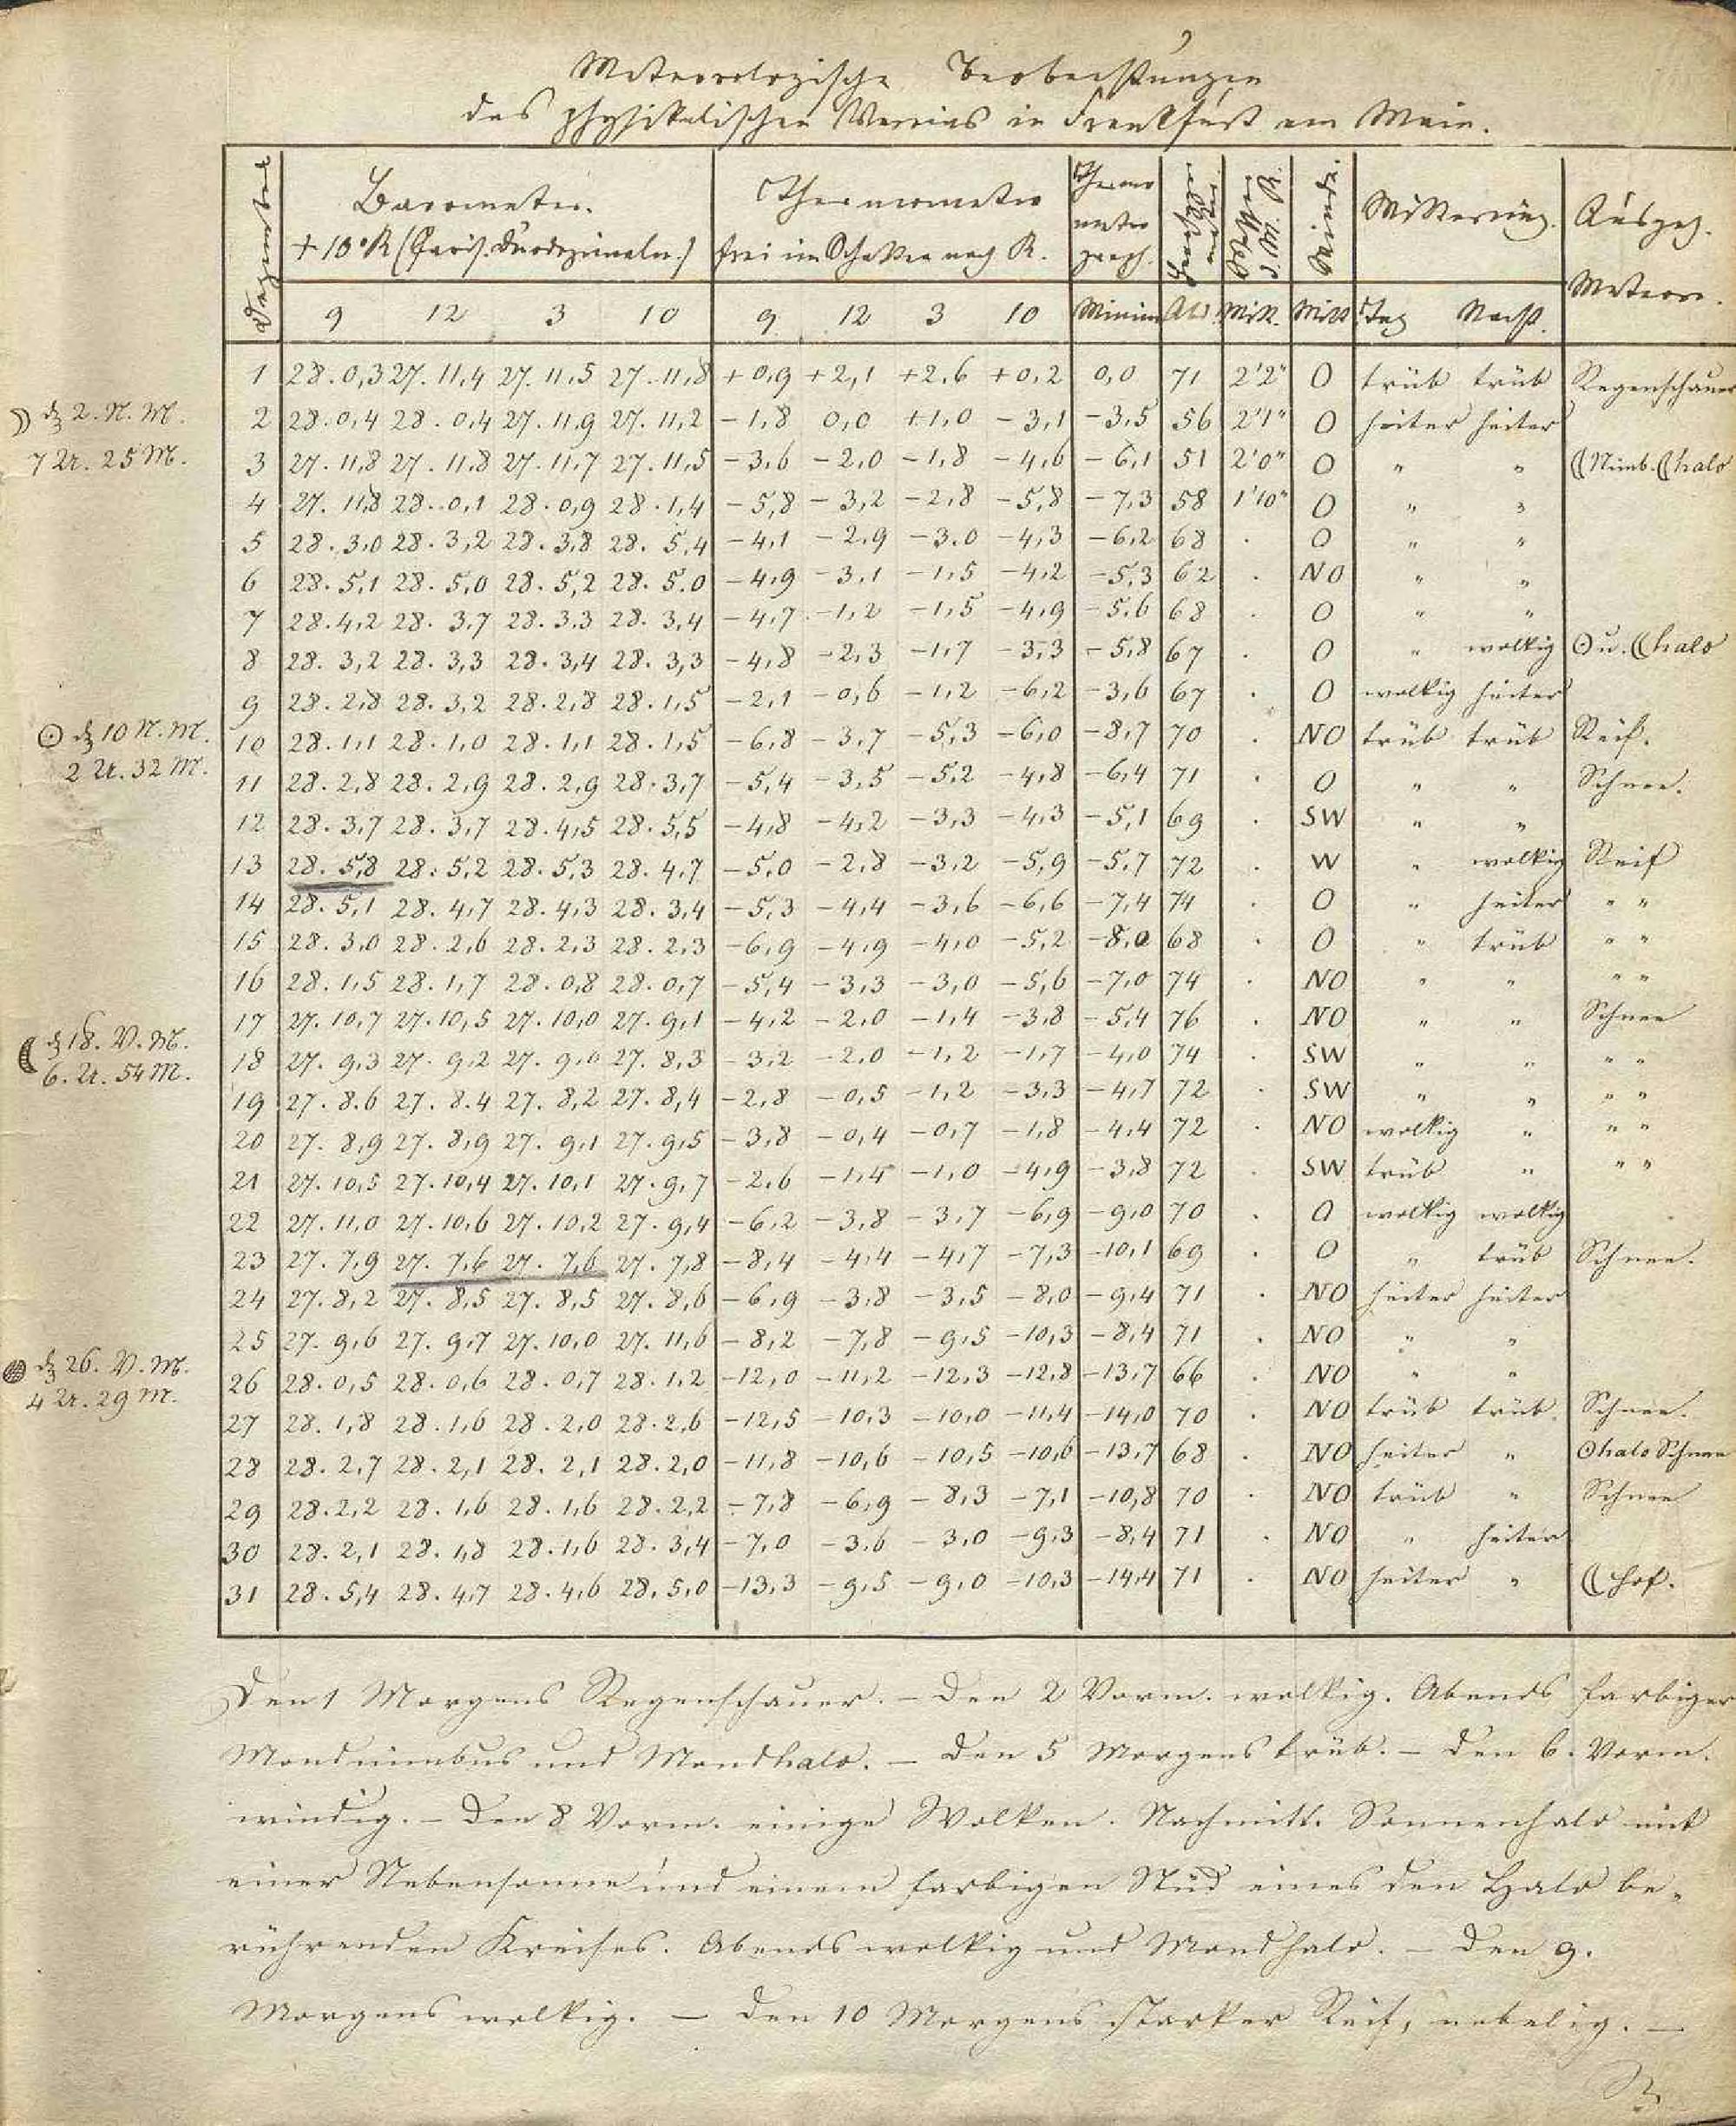 Meteorologische Beobachtungen
des physikalischen Vereins in Frankfurt am Main.
Dezember
Barometer. Thermometer Thermo Witterung. Ausgez.
+ 10° R (Paris. Duodezimaln.) frei im Schatten nach R. meter graph. Winde Meteore.
9 12 3 10 9 12 3 10 Minim Ab. Mitt. Mitt Tag Nacht.
1 28.0,3 27.11,4 27.11,5 27.11,8 +0,9 +2,1 +2,6 +0,2 0,0 71 2'2" O trüb trüb Regenschauer
☽ d. 2. N. M. 7 U. 25 M.
2 28.0,4 28.0,4 27.11,9 27.11,2 -1,8 0,0 +1,0 -3,1 -3,5 56 2'1" O heiter heiter
3 27.11,8 27.11,8 27.11,7 27.11,5 -3,6 -2,0 -1,8 -4,6 -6,1 51 2'0" O " " ☾Nimb. ☾halo
4 27.11,8 28.0,1 28.0,9 28.1,4 -5,8 -3,2 -2,8 -5,8 -7,3 58 1'10" O " "
5 28.3,0 28.3,2 28.3,8 28.5,4 -4,1 -2,9 -3,0 -4,3 -6,2 68 . O " "
6 28.5,1 28.5,0 28.5,2 28.5,0 -4,9 -3,1 -1,5 -4,2 -5,3 62 . NO " "
7 28.4,2 28.3,7 28.3,3 28.3,4 -4,7 -1,2 -1,5 -4,9 -5,6 68 . O " "
8 28.3,2 28.3,3 28.3,4 28.3,3 -4,8 -2,3 -1,7 -3,3 -5,8 67 . O " wolkig ⊙ u. ☾halo
9 28.2,8 28.3,2 28.2,8 28.1,5 -2,1 -0,6 -1,2 -6,2 -3,6 67 . O wolkig heiter
⊙ d. 10 N. M. 2 U. 32 M.
10 28.1,1 28.1,0 28.1,1 28.1,5 -6,8 -3,7 -5,3 -6,0 -8,7 70 . NO trüb trüb Reif.
11 28.2,8 28.2,9 28.2,9 28.3,7 -5,4 -3,5 -5,2 -4,8 -6,4 71 . O " " Schnee.
12 28.3,7 28.3,7 28.4,5 28.5,5 -4,8 -4,2 -3,3 -4,3 -5,1 69 . SW " "
13 28.5,8 28.5,2 28.5,3 28.4,7 -5,0 -2,8 -3,2 -5,9 -5,7 72 . W " wolkig Reif
14 28.5,1 28.4,7 28.4,3 28.3,4 -5,3 -4,4 -3,6 -6,6 -7,4 74 . O " heiter " "
15 28.3,0 28.2,6 28.2,3 28.2,3 -6,9 -4,9 -4,0 -5,2 -8,0 68 . O " trüb " "
16 28.1,5 28.1,7 28.0,8 28.0,7 -5,4 -3,3 -3,0 -5,6 -7,0 74 . NO " " " "
17 27.10,7 27.10,5 27.10,0 27.9,1 -4,2 -2,0 -1,4 -3,8 -5,4 76 . NO " " Schnee
☾ d. 18. V. M. 6. U. 54 M.
18 27.9,3 27.9,2 27.9,0 27.8,3 -3,2 -2,0 -1,2 -1,7 -4,0 74 . SW " " " "
19 27.8,6 27.8,4 27.8,2 27.8,4 -2,8 -0,5 -1,2 -3,3 -4,7 72 . SW " " " "
20 27.8,9 27.8,9 27.9,1 27.9,5 -3,8 -0,4 -0,7 -1,8 -4,4 72 . NO wolkig " " "
21 27.10,5 27.10,4 27.10,1 27.9,7 -2,6 -1,4 -1,0 -4,9 -3,8 72 . SW trüb " " "
22 27.11,0 27.10,6 27.10,2 27.9,4 -6,2 -3,8 -3,7 -6,9 -9,0 70 . O wolkig wolkig
23 27.7,9 27.7,6 27.7,6 27.7,8 -8,4 -4,4 -4,7 -7,3 -10,1 69 . O " trüb Schnee.
24 27.8,2 27.8,5 27.8,5 27.8,6 -6,9 -3,8 -3,5 -8,0 -9,4 71 . NO heiter heiter
25 27.9,6 27.9,7 27.10,0 27.11,6 -8,2 -7,8 -9,5 -10,3 -8,4 71 . NO " "
● d. 26. V. M. 4 U. 29 M.
26 28.0,5 28.0,6 28.0,7 28.1,2 -12,0 -11,2 -12,3 -12,8 -13,7 66 . NO " "
27 28.1,8 28.1,6 28.2,0 28.2,6 -12,5 -10,3 -10,0 -11,4 -14,0 70 . NO trüb trüb. Schnee.
28 28.2,7 28.2,1 28.2,1 28.2,0 -11,8 -10,6 -10,5 -10,6 -13,7 68 . NO heiter " ⊙halo Schnee
29 28.2,2 28.1,6 28.1,6 28.2,2 -7,8 -6,9 -8,3 -7,1 -10,8 70 . NO trüb " Schnee
30 28.2,1 28.1,8 28.1,6 28.3,4 -7,0 -3,6 -3,0 -9,3 -8,4 71 . NO " heiter
31 28.5,4 28.4,7 28.4,6 28.5,0 -13,3 -9,5 -9,0 -10,3 -14,4 71 . NO heiter " ☾hof.
Den 1 Morgens Regenschauer. – Den 2 Vorm. wolkig. Abends farbiger
Mondnimbus und Mondhalo. – Den 5 Morgens trüb. – Den 6. Vorm.
windig. – Den 8 Vorm. einige Wolken. Nachmitt. Sonnenhalo mit
einer Nebensonne und einem farbigen Stück eines den Halo be-
rührenden Kreises. Abends wolkig und Mondhalo. – Den 9.
Morgens wolkig. – Den 10 Morgens starker Reif, nebelig. –